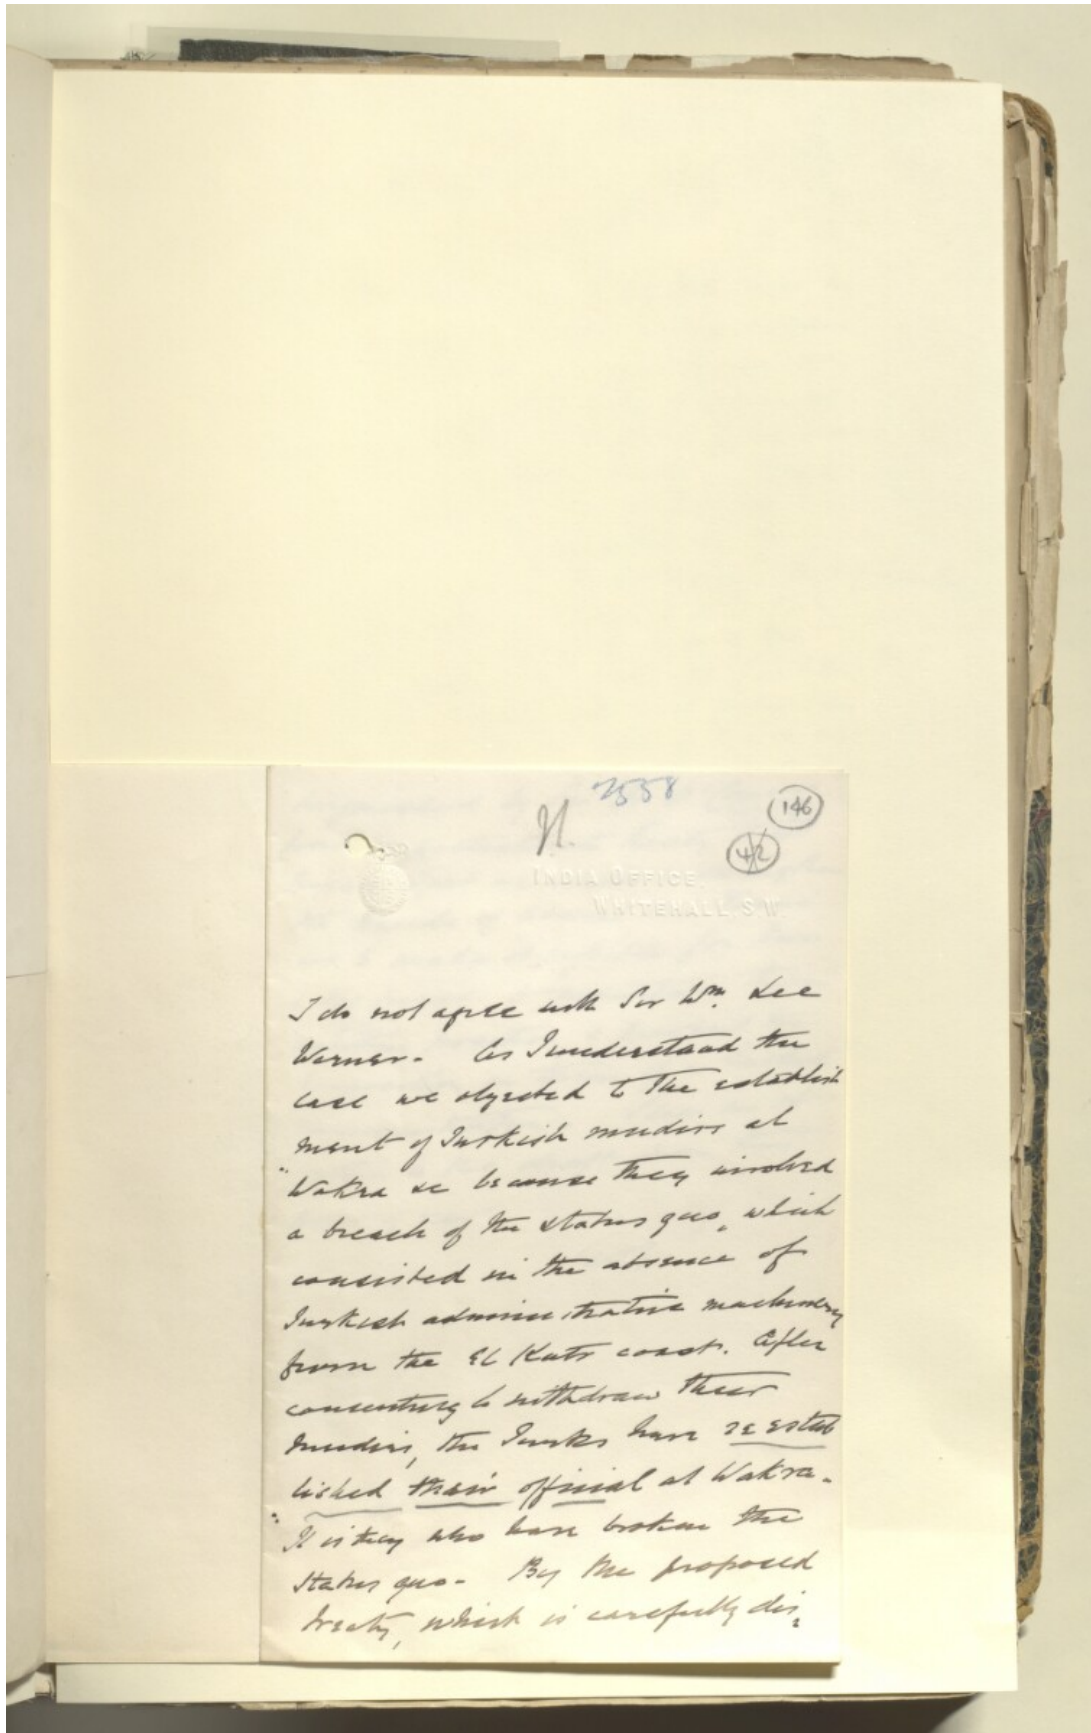 2558
146
42
INDIA OFFICE,
WHITEHALL, S.W.
I do not agree with Sir Wm. Lee
Warner - As I understand the
case we objected to the establish
ment of Turkish mudirs at
Wakra &c because they involved
a breach of the status quo, which
consisted in the absence of
Turkish administrative machinery
from the El Katr coast. After
consenting to withdraw their
mudirs, the Turks have re estab
lished their official at Wakra.
It is they who have broken the
status quo - By the proposed
treaty, which is carefully dis,